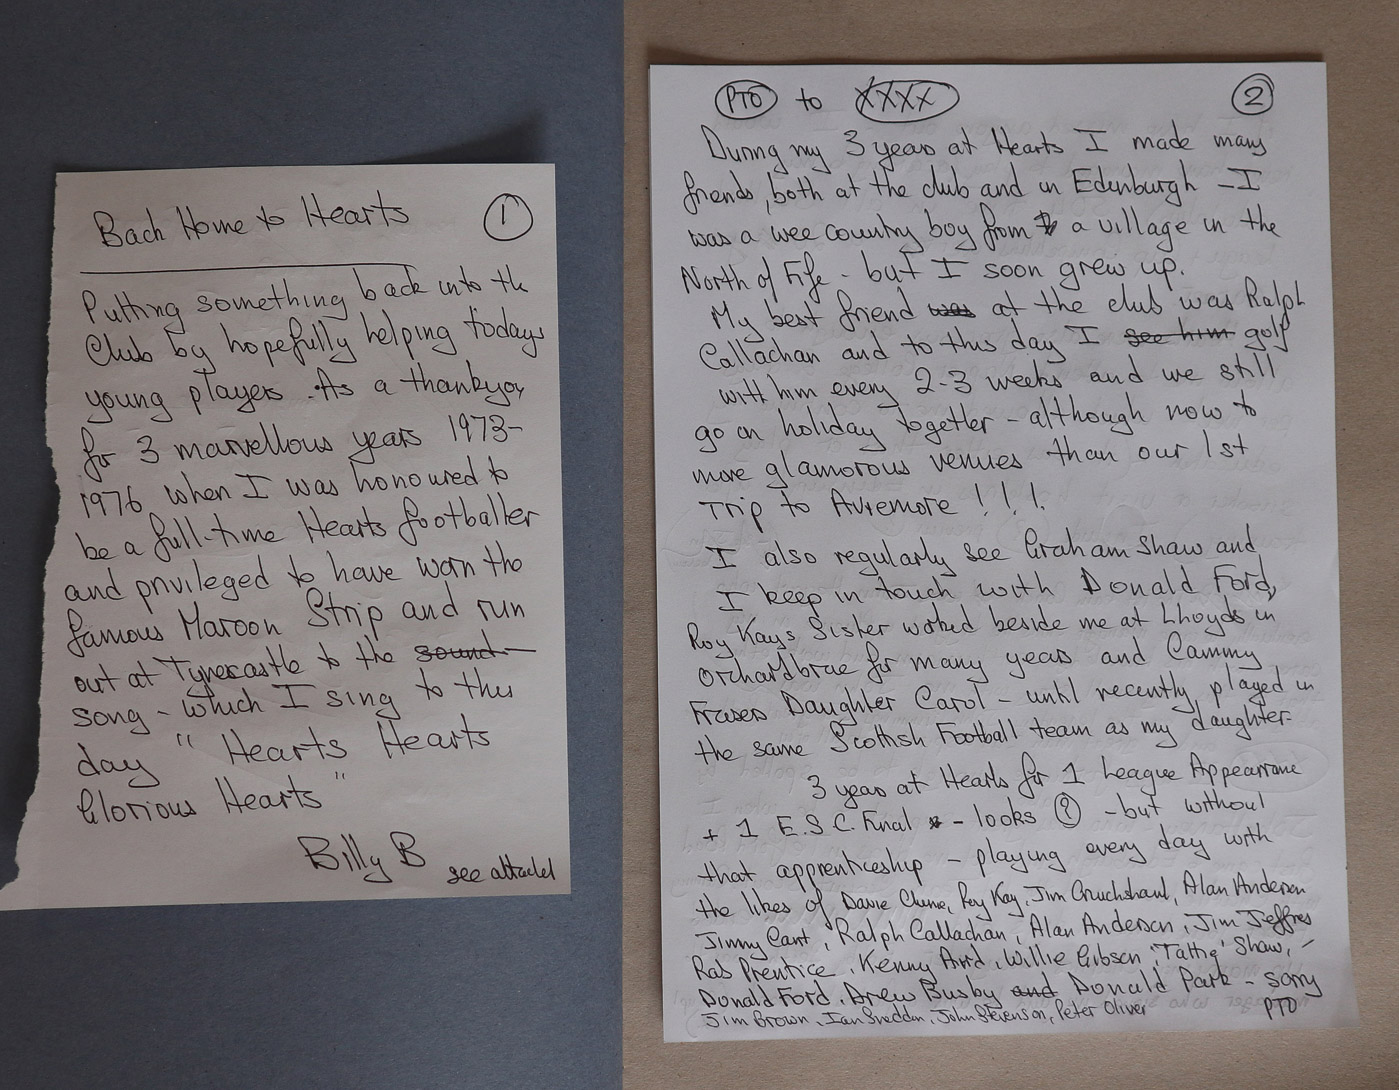 Back Home to Hearts
1
Putting something back into the
Club by hopefully helping todays
young players. As a thankyou
for 3 marvellous years 1973-
1976 when I was honoured to
be a full-time Hearts footballer
and privileged to have worn the
famous Maroon Strip and run
out at Tynecastle to the sound
song - which I sing to this
day " Hearts Hearts
Glorious Hearts "
Billy B
see attached
PTO to XXXX
2
During my 3 years at Hearts I made many
friends, both at the club and in Edinburgh - I
was a wee country boy from a village in the
North of Fife - but I soon grew up.
My best friend was at the club was Ralph
Callachan and to this day I see him golf
with him every 2-3 weeks and we still
go on holiday together - although now to
more glamorous venues than our 1st
Trip to Aviemore !!!
I also regularly see Graham Shaw and
I keep in touch with Donald Ford,
Roy Kays Sister worked beside me at Lloyds in
Orchardbrae for many years and Cammy
Frasers Daughter Carol - until recently played in
the same Scottish Football team as my daughter
3 years at Hearts for 1 League Appearance
+ 1 E.S.C. Final - looks ? - but without
that apprenticeship - playing every day with
the likes of Davie Clunie, Roy Kay, Jim Cruickshank, Alan Anderson
Jimmy Cant, Ralph Callachan, Alan Anderson, Jim Jeffries
Rab Prentice, Kenny Aird, Willie Gibson, 'Tattie' Shaw,
Donald Ford, Drew Busby and Donald Park - sorry
Jim Brown, Ian Sneddon, John Stevenson, Peter Oliver
PTO